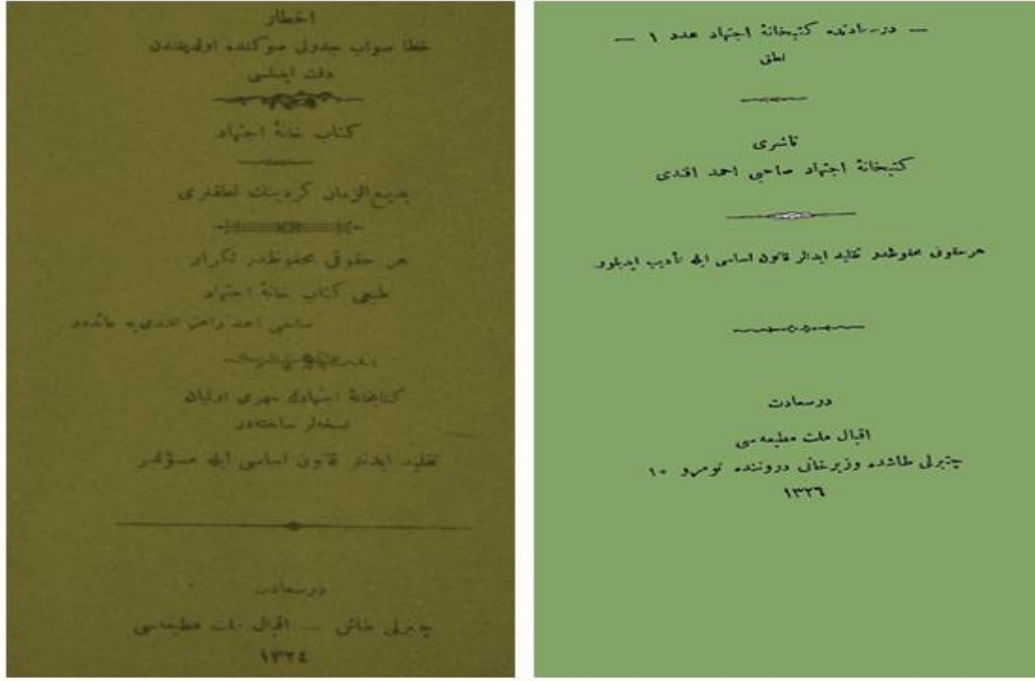 اخطار
خطا صواب جدولی صوكنده اولدیغندن
دقت ایدلملی
كتاب خانهٔ اجتهاد
بدیع الزمان كردینك نطقلری
هر حقوقی محفوظدر تكرار
طبعی كتاب خانهٔ اجتهاد
صاحبی احمد رامز افندی یه عائددر
كتابخانهٔ اجتهادك مهری اولمیان
نسخه‌لر ساخته‌در
تقلید ایدنلر قانون اساسی ایله مسؤلدر
درسعادت
چنبرلی طاش — اقبال ملت مطبعه‌سی
١٣٢٤
— درسعادتده كتبخانهٔ اجتهاد عدد ١ —
نطق
ناشری
كتبخانهٔ اجتهاد صاحبی احمد افندی
هر حقوقی محفوظدر تقلید ایدنلر قانون اساسی ایله تأدیب ایدیلور
درسعادت
اقبال ملت مطبعه‌سی
چنبرلی طاشده وزیرخانی دروننده نومرو ١٠
١٣٢٦